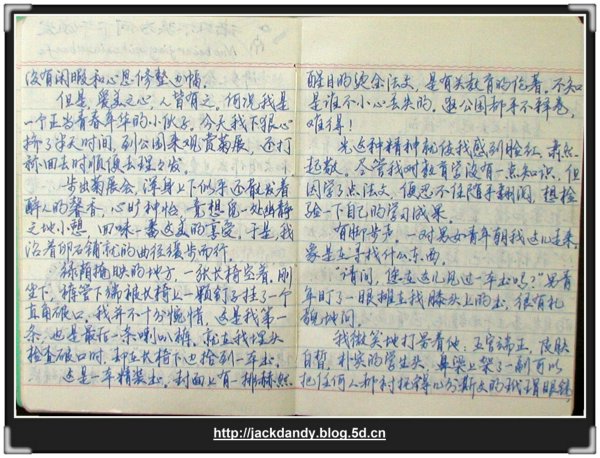 没有闲暇和心思修整边幅。
但是，爱美之心，人皆有之。何况我是
一个正当青春年华的小伙子。今天我下狠心
挤了半天时间，到公园来观赏菊展，还打
标回去时顺便去理个发。
步出菊展会，浑身上下似乎还散发着
醉人的馨香，心旷神怡，竟想觅一处幽静
之地小憩，回味一番这美的享受。于是，我
沿着卵石铺就的曲径缓步而行。
绿荫掩映的地方，一张长椅空着。刚
坐下，裤管下端被长椅上一颗钉子挂了一个
直角破口。我并不十分惋惜，这是我第一
条，也是最后一条喇叭裤。就在我埋头
检查破口时，却在长椅下边拾到一本书。
这是一本精装书，封面上有一排赫然
醒目的烫金法文，是有关教育的论著。不知
是谁不小心丢失的，逛公园都手不释卷，
难得！
光这种精神就使我感到脸红，肃然
起敬。尽管我对教育学没有一点知识，但
因学了点法文，便忍不住随手翻阅，想检
验一下自己的学习成果。
有脚步声。一对男女青年朝我这儿走来，
象是在寻找什么东西。
“请问，您在这儿见过一本书吗？”男青
年盯了一眼摊在我膝头上的书，很有礼
貌地问。
我微笑地打量着他，五官端正，皮肤
白皙，朴实的学生头，鼻梁上架了一副可以
把任何人都衬托得几分斯文的秀琅眼镜，
http://jackdandy.blog.5d.cn